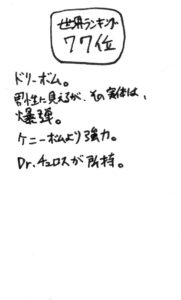 世界ランキング
77位
ドリーボム。
男性に見えるが、その実体は、
爆弾。
ケニーボムより強力。
Dr.チュロスが所持。